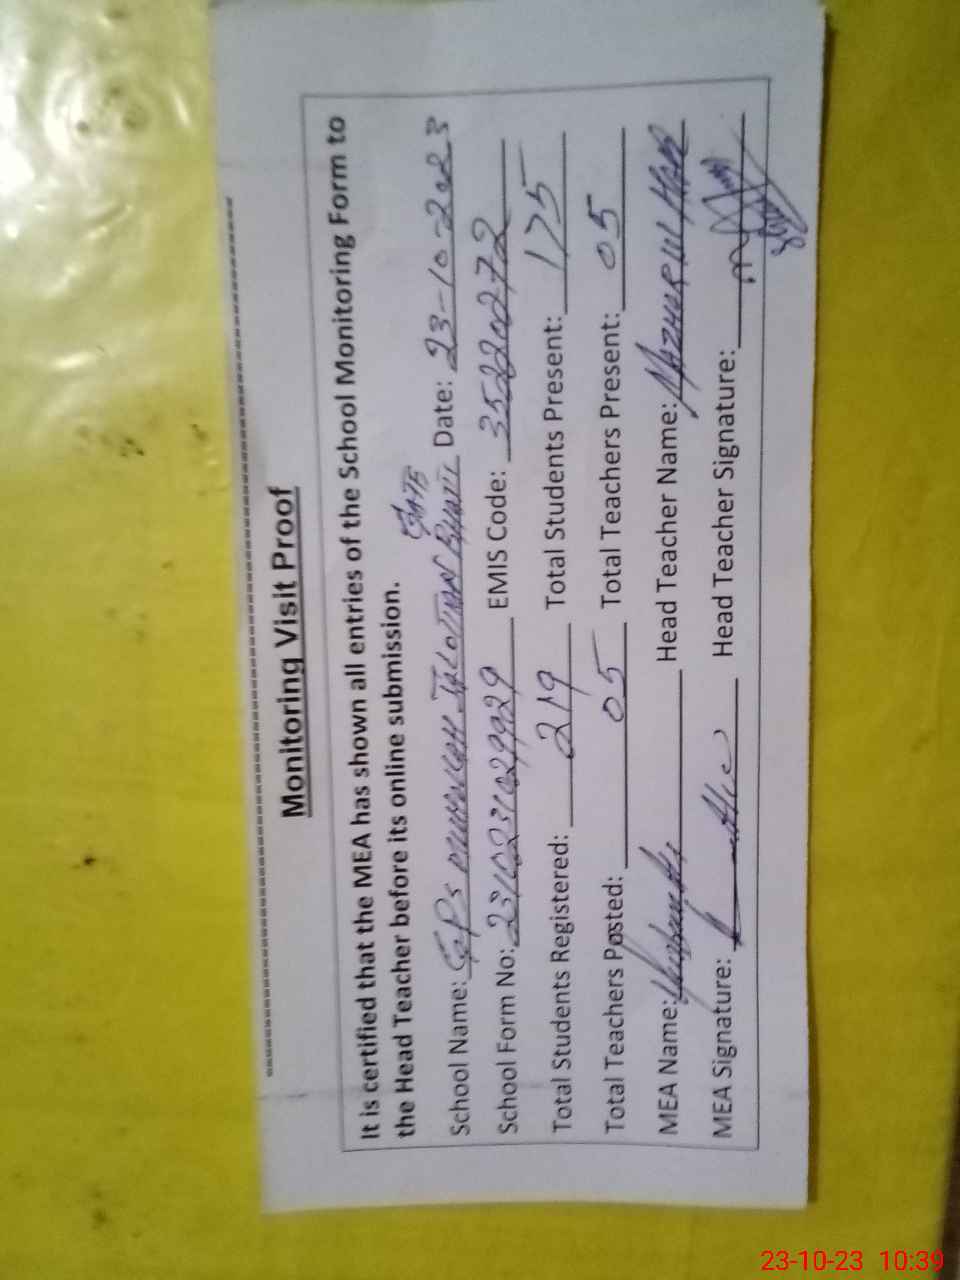 Monitoring Visit Proof
It is certified that the MEA has shown all entries of the School Monitoring Form to
the Head Teacher before its online submission.
School Name: GPS Bhatti Date: 23-10-2023
School Form No: 23102310299929 EMIS Code: 35220272
Total Students Registered: 219 Total Students Present: 175
Total Teachers Posted: 05 Total Teachers Present: 05
MEA Name: Head Teacher Name: MAZHUR UL HAQ
MEA Signature: Head Teacher Signature:
23-10-23 10:39